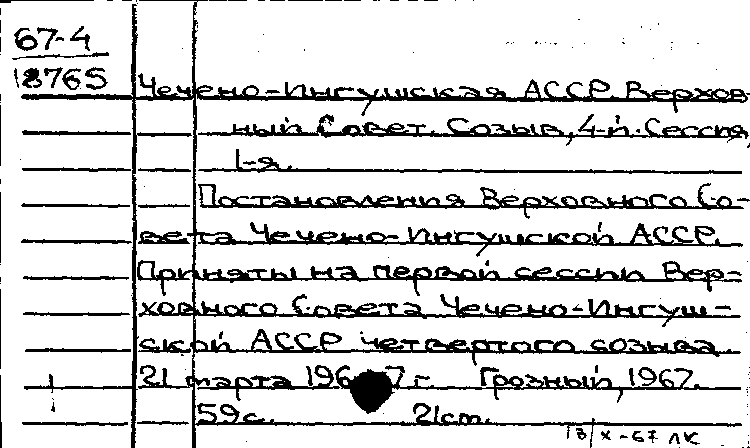 67-4
18765
Чечено-Ингушская АССР. Верхов-
ный Совет. Созыв, 4-й. Сессия,
1-я.
Постановления Верховного Со-
вета Чечено-Ингушской АССР.
Приняты на первой сессии Вер-
ховного Совета Чечено-Ингуш-
ской АССР четвертого созыва.
21 марта 1967 г. Грозный, 1967.
59 с. 21 cm.
13/X-67 ЛК